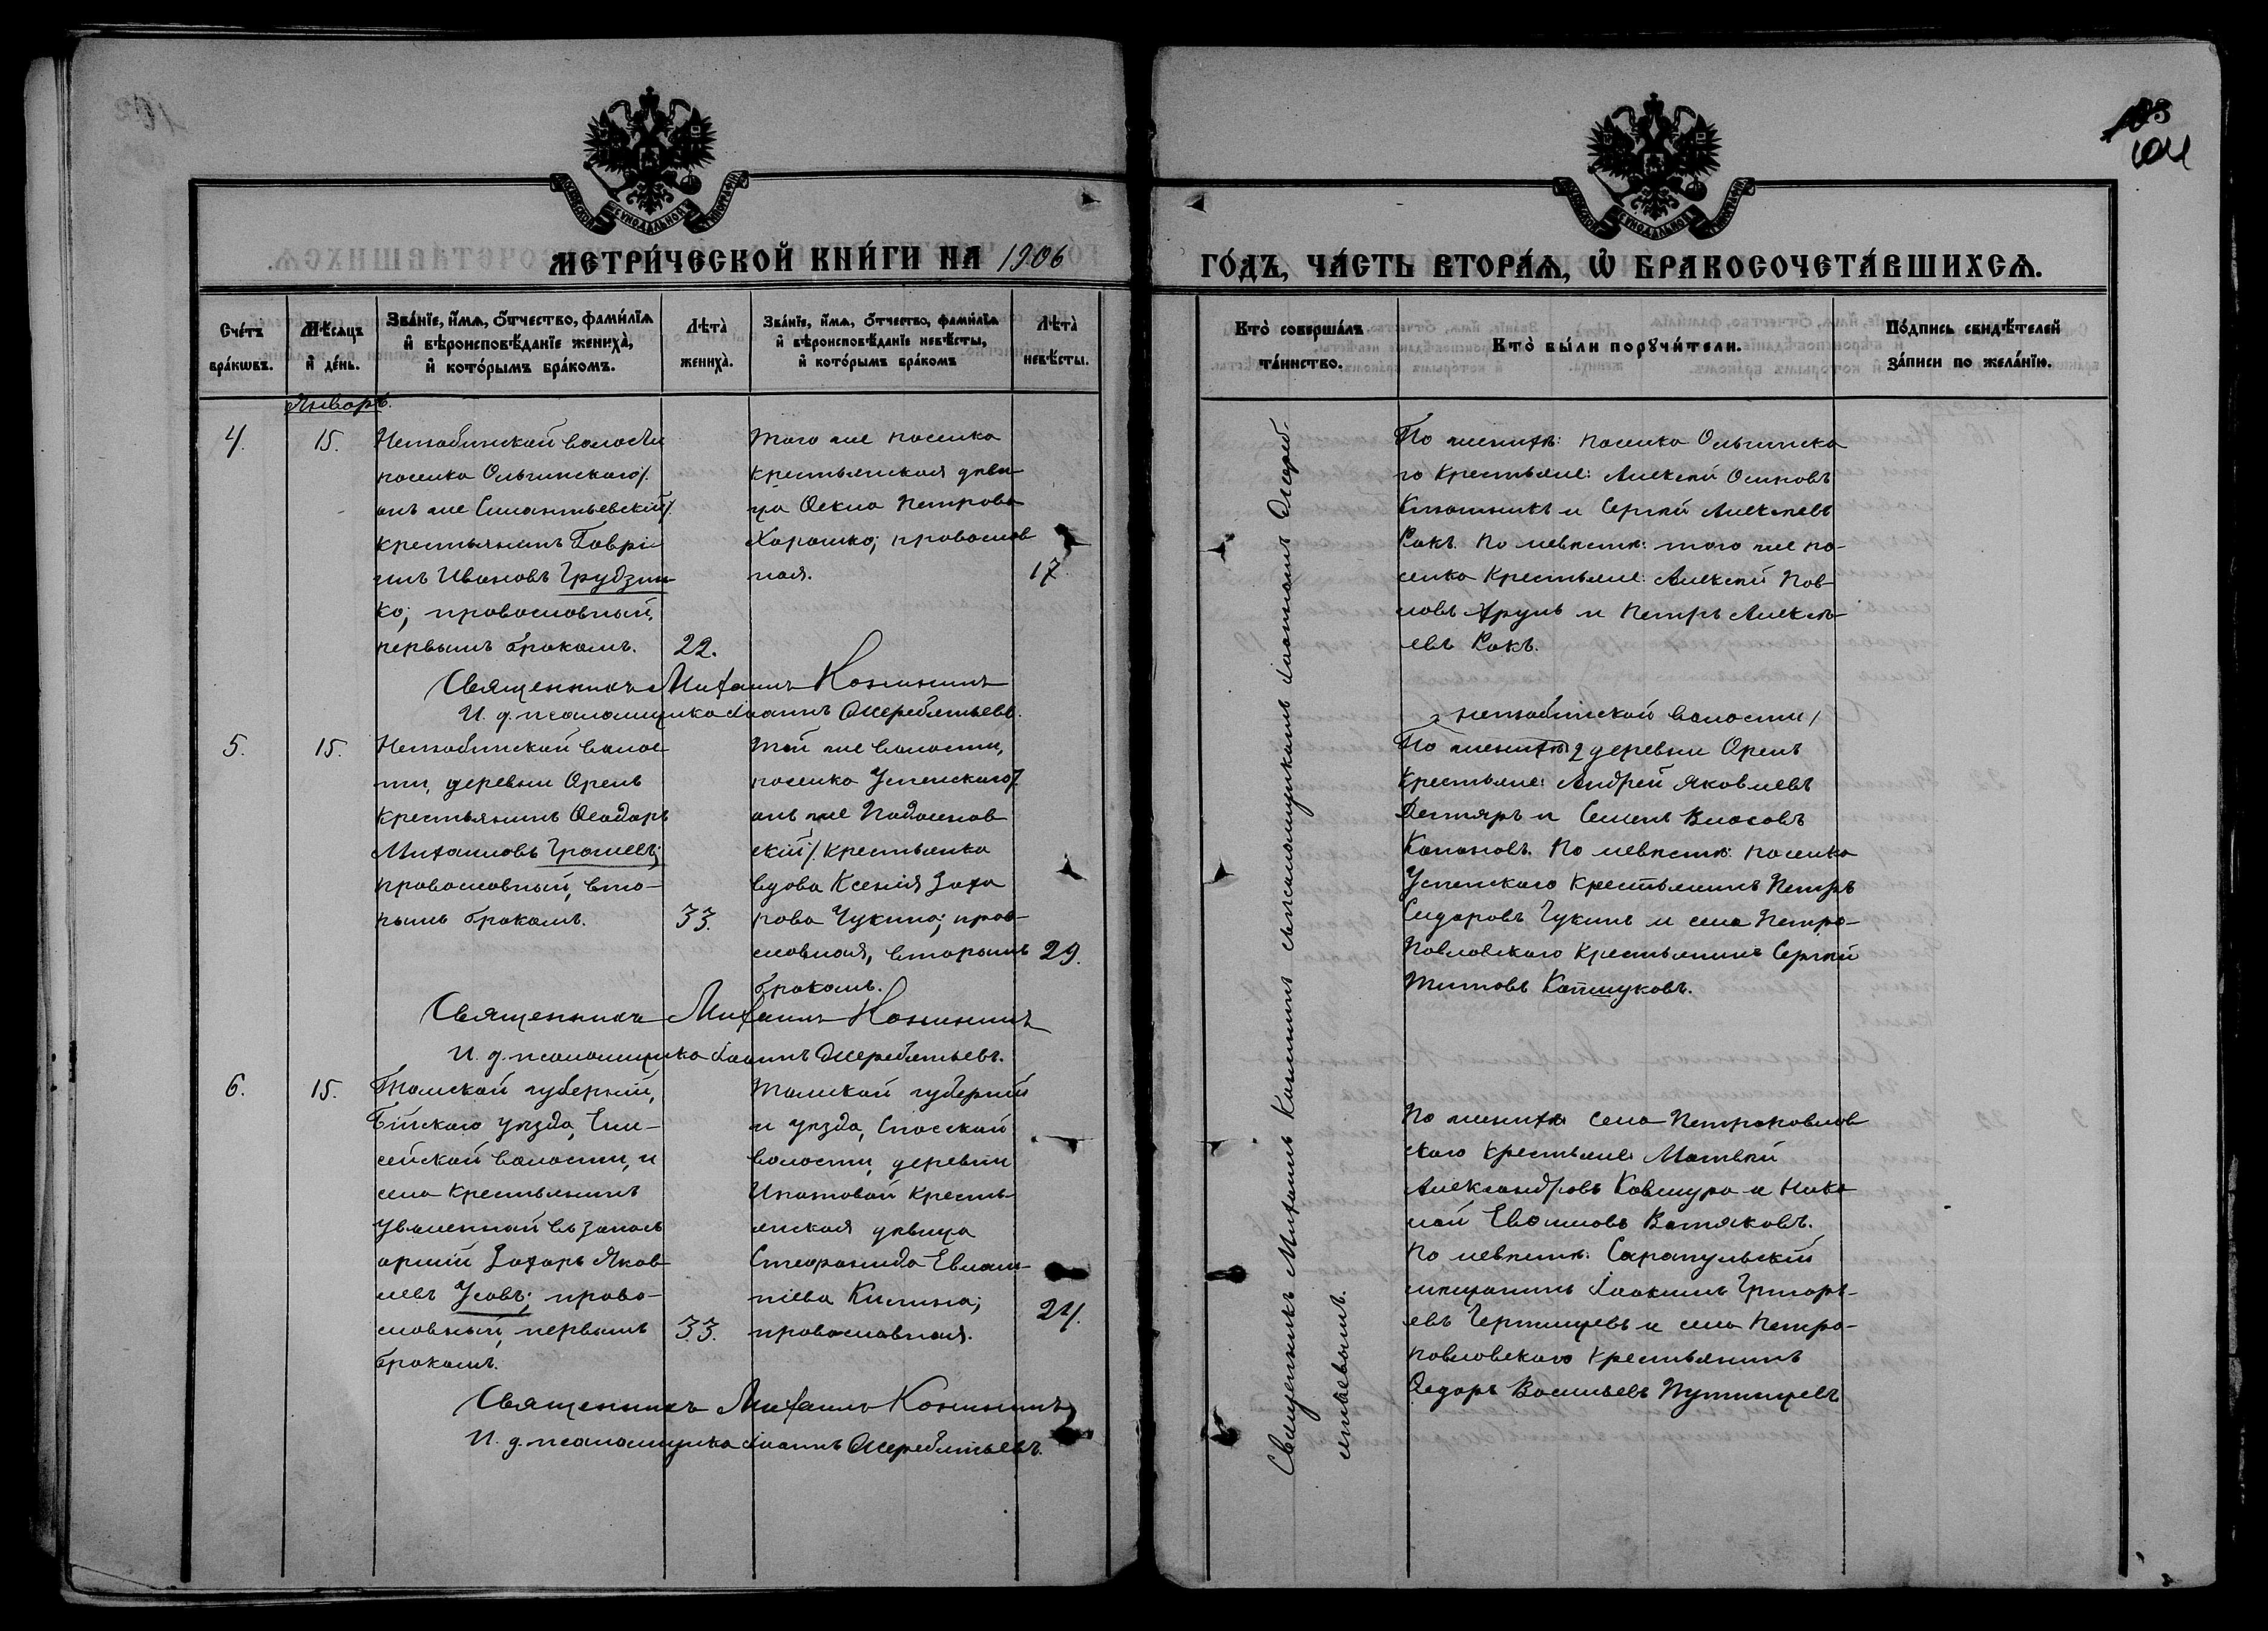 МЕТРИ́ЧЕСКОЙ КНИ́ГИ НА 1906
Сче́тъ
бра́кωвъ.
Мѣ́сяцъ
и҆ де́нь.
Зва́нїе, и҆́мѧ, ѻ҆́тчество, фами́лїѧ
и҆ вѣроисповѣ́данїе жениха̀,
и҆ кото́рымъ бра́комъ.
Лѣта̀
жениха̀.
Зва́нїе, и҆́мѧ, ѻ҆́тчество, фами́лїѧ
и҆ вѣроисповѣ́данїе невѣ́сты,
и҆ кото́рымъ бра́комъ
Лѣта̀
невѣ́сты.
Январь.
4.
15.
волости
поселка Ольгинскаго/.
онъ же
крестьянинъ Гаврі-
илъ Ивановъ Грудзин-
ко; православный,
первымъ бракомъ.
22.
Того же поселка
крестьянская дѣви-
ца Ѳекла Петрова
Харашко; православ
ная.
17
Священникъ Михаилъ Конинин
И. д. псаломщика Іоаннъ Жеребятьевъ.
5.
15.
волос-
ти, деревни Орелъ
крестьянинъ Ѳеодоръ
Михаиловъ Грошевъ;
православный, вто-
рымъ бракомъ.
33.
Той же волости,
поселка Успенскаго/.
онъ же Подосенов
скій/. крестьянка
вдова Ксенія Заха
рова Чукина; прав-
славная, вторымъ
бракомъ.
29.
Священникъ Михаилъ Конининъ
И. д. псаломщика Іоаннъ Жеребятьевъ.
6.
15.
Томской губерніи,
Бійскаго уѣзда, Ени-
сейской волости, и
села крестьянинъ
уволенный въ запасъ
арміи Захаръ Яков-
левъ Усовъ; право-
славный, первымъ
бракомъ.
33.
Томской губерніи
и уѣзда, Спасской
волости, деревни
Ипатовой кресть-
янская дѣвица
Стефанида Евлам-
піева Килина;
православная.
24.
Священникъ Михаилъ Конининъ
И. д. псаломщика Іоаннъ Жеребятьевъ.
103
104
ГО́ДЪ, ЧА́СТЬ ВТОРА́Ѧ, Ѽ БРАКОСОЧЕТА́ВШИХСѦ.
Кто̀ соверша́лъ
та́инство.
Кто̀ бы́ли порꙋчи́тели.
По́дпись свидѣ́телей
за́писи по жела́нїю.
Священникъ Михаилъ Конининъ съ псаломщикомъ Іоанномъ Жереб-
ятьевымъ.
По женихѣ: поселка Ольгинска
го крестьяне: Алексѣй Осиповъ
и Сергѣй Алексѣевъ
Рокъ. По невѣстѣ: того же по-
селка крестьяне: Алексѣй Пав-
ловъ Друпъ и Петръ Алексѣ-
евъ Рокъ.
волости/
По женихѣ деревни Орелъ
крестьяне: Андрей Яковлевъ
Дегтяръ и Семенъ Власовъ
Капановъ. По невѣстѣ: поселка
Успенскаго крестьянинъ Петръ
Сидоровъ Чукинъ и села Петро-
павловскаго крестьянинъ Сергѣй
Титовъ Капшуковъ.
По женихѣ села Петропавлов
скаго крестьяне: Матвѣй
Александровъ Ковшура и Нико
лай Евѳимовъ Вотяковъ.
По невѣстѣ: Сарапульскій
мѣщанинъ Іоакимъ Григорь-
евъ Чертищевъ и села Петро-
павловскаго крестьянинъ
Ѳедоръ Васильевъ Путинцевъ